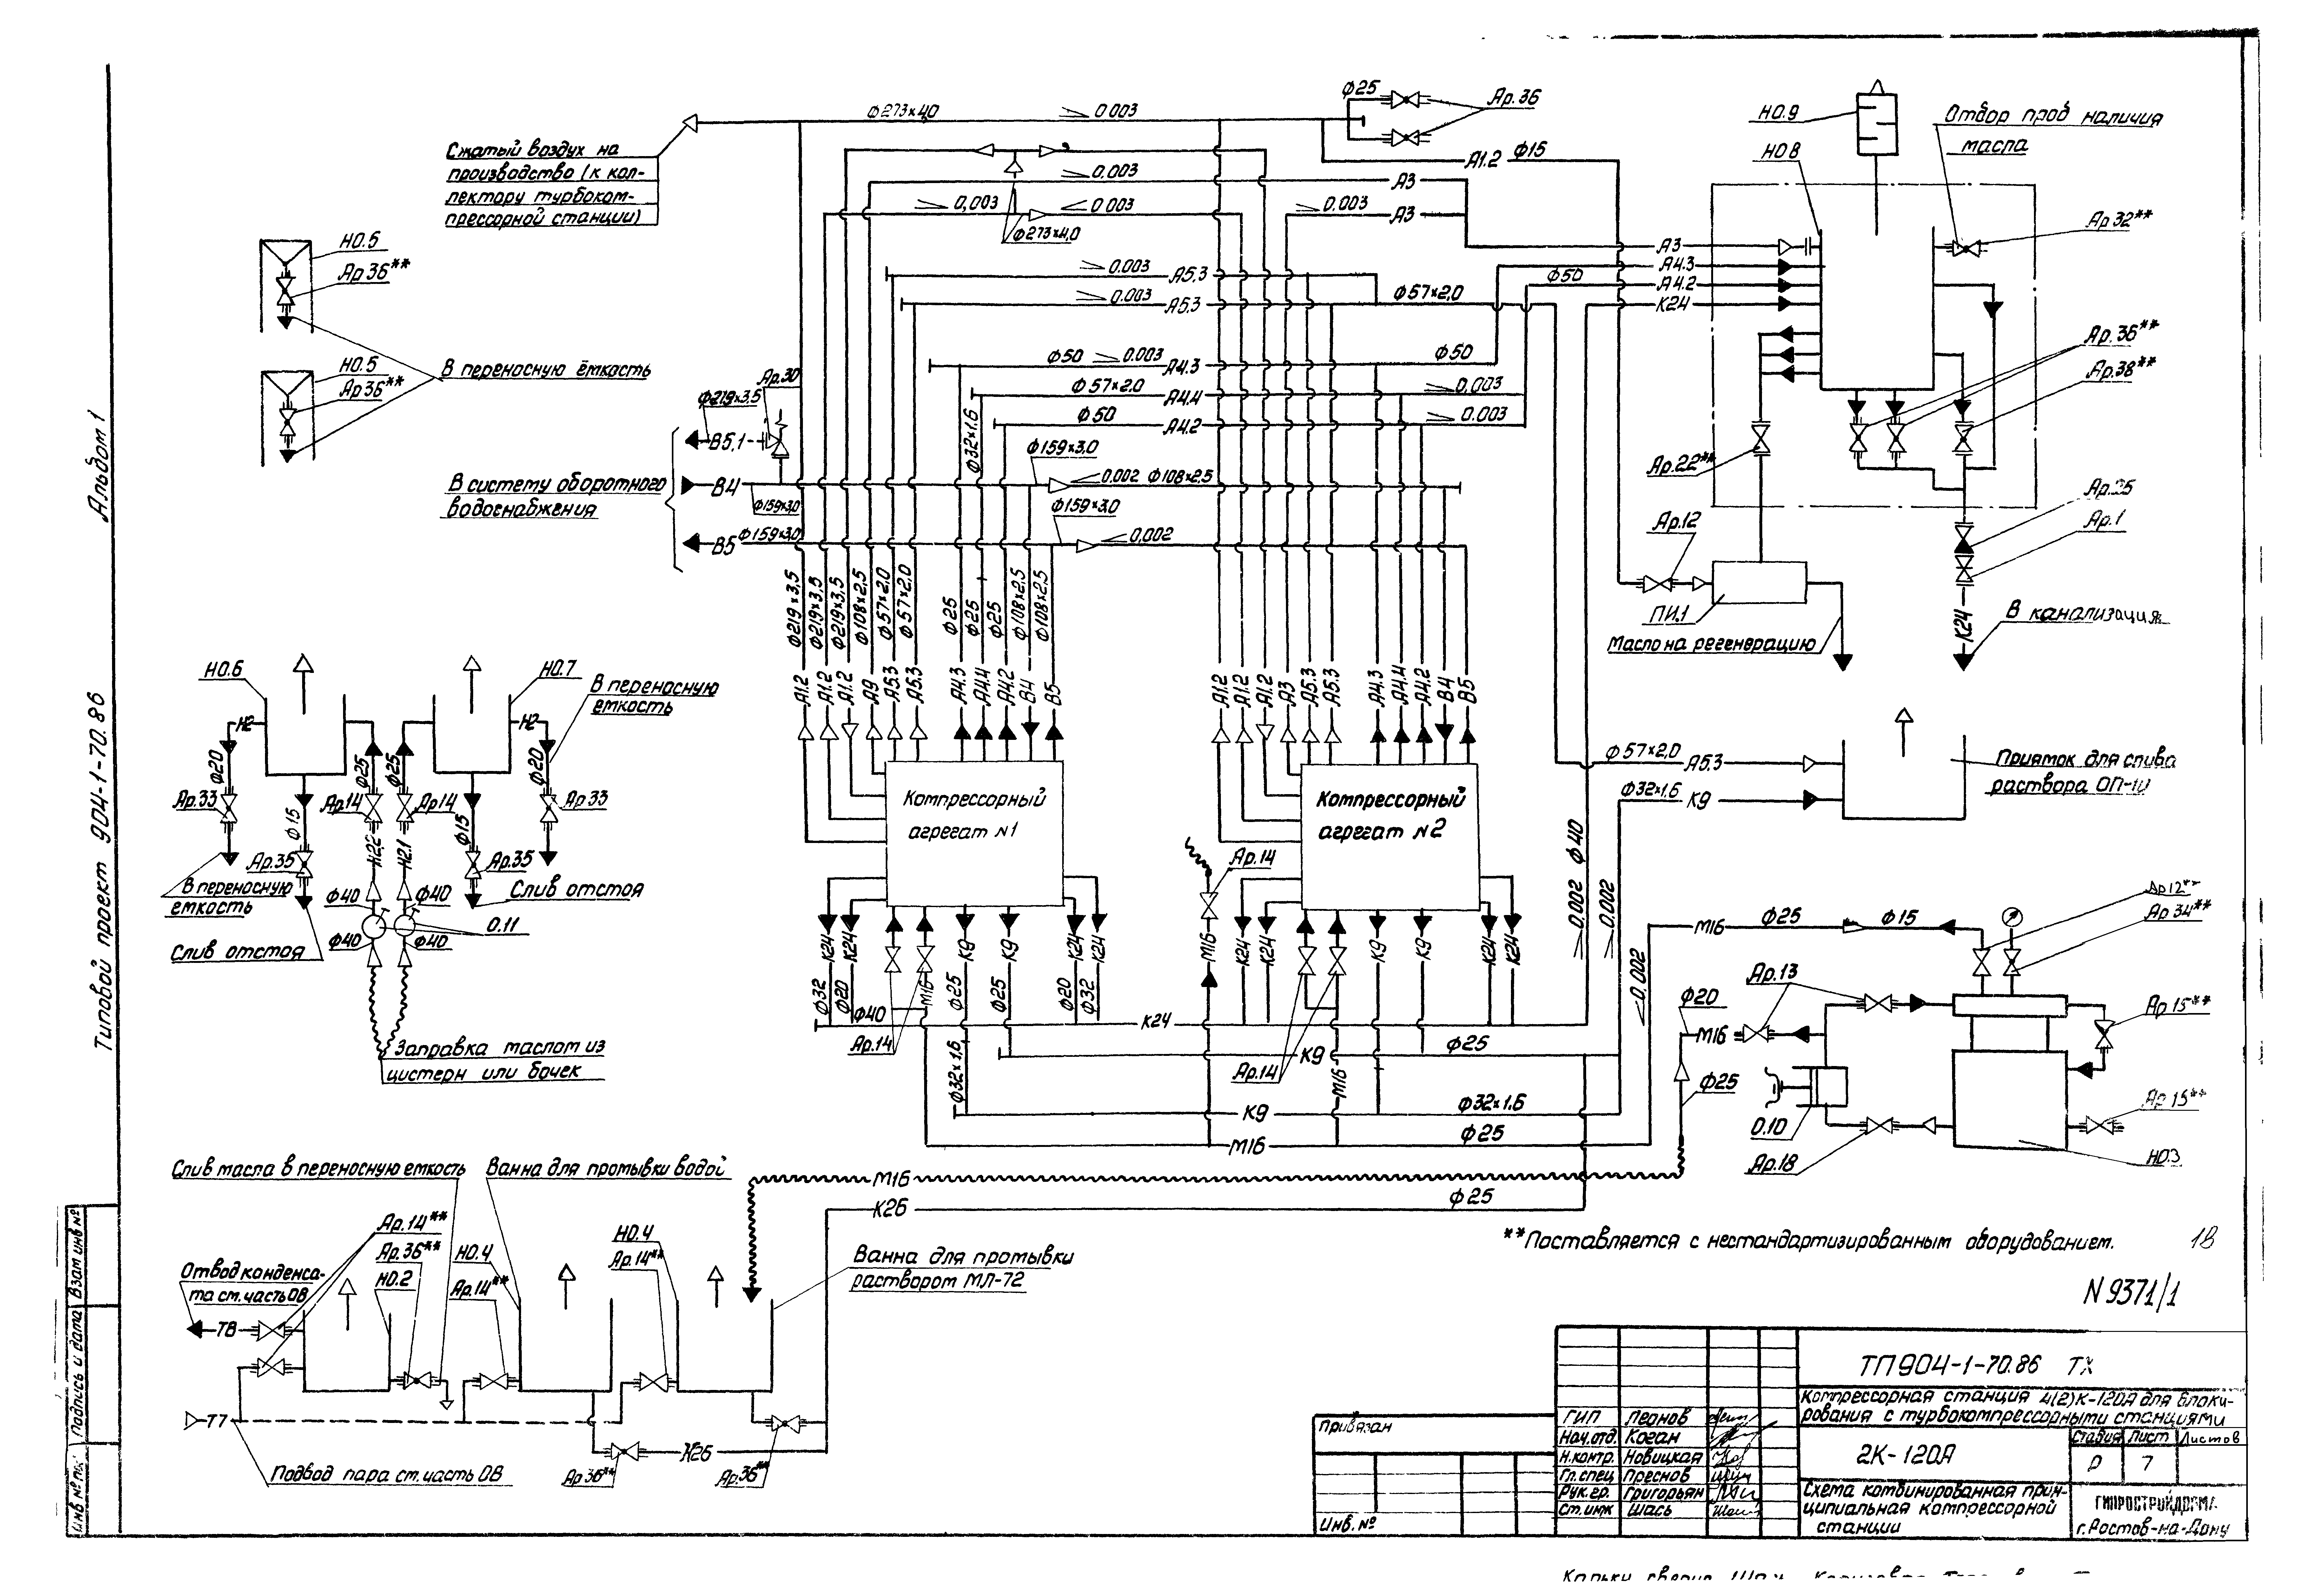 Альбом 1
Типовой проект 904-1-70.86
Взам инв №
Подпись и дата
Ф273×4,0
0.003
Ф25
Ар.36
Сжатый воздух на
производство (к кол-
лектору турбоком-
прессорной станции)
А1.2 Ф15
НО.9
НО.8
Отбор проб наличия
масла
0.003
А3
0,003
0.003
Ф273×4,0
0.003
А3
Ар.32**
А3
А4.3
Ф50
А4.2
К24
НО.5
Ар.36**
НО.5
Ар36**
В переносную ёмкость
0.003
А5.3
0.003
А5.3
Ф57×2,0
Ф50
0.003
А4.3
Ф50
Ф57×2.0
А4.4
0,003
Ф50
А4.2
0.003
Ар.30
Ф219×3,5
В5,1
Ф32×1.6
Ф159×3,0
В систему оборотного
водоснабжения
В4
Ф159×3,0
0.002 Ф108×2,5
Ф159×3,0
В5
Ф159×3,0
0,002
Ар.36**
Ар.38**
Ар.22**
Ар.25
Ар.1
Ар.12
ПИ.1
К24
В канализация
Масло на регенерацию
Ф219×3,5
Ф219×3,5
Ф219×3,5
Ф108×2,5
Ф57×2,0
Ф57×2,0
Ф25
Ф25
Ф25
Ф108×2,5
Ф108×2,5
А1.2
А1.2
А1.2
А9
А5.3
А5.3
А4.3
А4.4
А4.2
В4
В5
А1.2
А1.2
А1.2
А3
А5.3
А5.3
А4.3
А4.4
А4.2
В4
В5
НО.6
НО.7
В переносную
емкость
Н2
Н2
Ф20
Ф25
Ф25
Ф20
Ар.33
Ар.14
Ар.14
Ар.33
Ф15
Ф15
Н2.2
Н2.1
Ар.35
Ар.35
В переносную
емкость
Слив отстоя
Ф40
Ф40
0.11
Ф40
Ф40
Слив отстоя
Заправка маслом из
цистерн или бочек
Компрессорный
агрегат №1
Компрессорный
агрегат №2
Ф57×2,0
А5.3
Ф32×1,6
К9
Приямок для слива
раствора ОП-10
Ар.14
0.002
Ф40
0.002
0.002
К24
К24
К9
К9
К24
К24
М16
К24
К24
К9
К9
К24
К24
Ф32
Ф20
М16
Ф25
Ф25
Ф20
Ф32
Ф40
К24
Ар.14
К9
Ф25
Ф32×1,6
Ар.14
М16
К9
Ф32×1,6
М16
Ф25
М16
Ф25
Ф15
Ар12**
Ар34**
Ар.13
Ф20
М16
Ар15**
Ф25
0.10
Ар.15**
Ар.18
НО.3
М16
К26
Ф25
Слив масла в переносную емкость
Ванна для промывки водой
Ар.14**
Ар.36**
НО.2
НО.4
Ар.14**
НО.4
Ар.14**
Ванна для промывки
раствором МЛ-72
Отвод конденса-
та см. часть ОВ
Т8
Т7
Подвод пара см. часть ОВ
Ар36**
К26
Ар.36**
**Поставляется с нестандартизированным оборудованием.
18
N 9371/1
Привязан
Инв. №
ГИП Леонов
Нач.отд. Коган
Н.контр. Новицкая
Гл.спец Преснов
Рук.гр. Григорьян
Ст.инж Шась
ТП904-1-70.86 ТХ
Компрессорная станция 4(2)К-120А для блоки-
рования с турбокомпрессорными станциями
2К-120А
Стадия Лист Листов
Р 7
Схема комбинированная прин-
ципиальная компрессорной
станции
ГИПРОСТРОЙДОРМАШ
г.Ростов-на-Дону